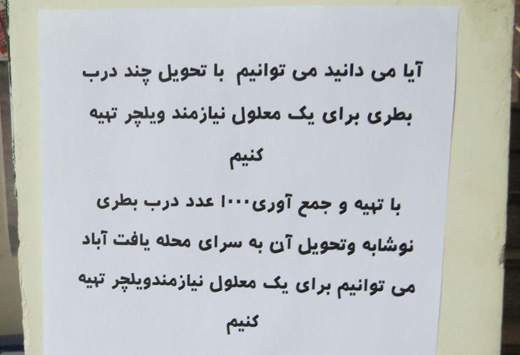 آیا می دانید می توانیم با تحویل چند درب
بطری برای یک معلول نیازمند ویلچر تهیه
کنیم
با تهیه و جمع آوری۱۰۰۰ عدد درب بطری
نوشابه وتحویل آن به سرای محله یافت آباد
می توانیم برای یک معلول نیازمندویلچر تهیه
کنیم